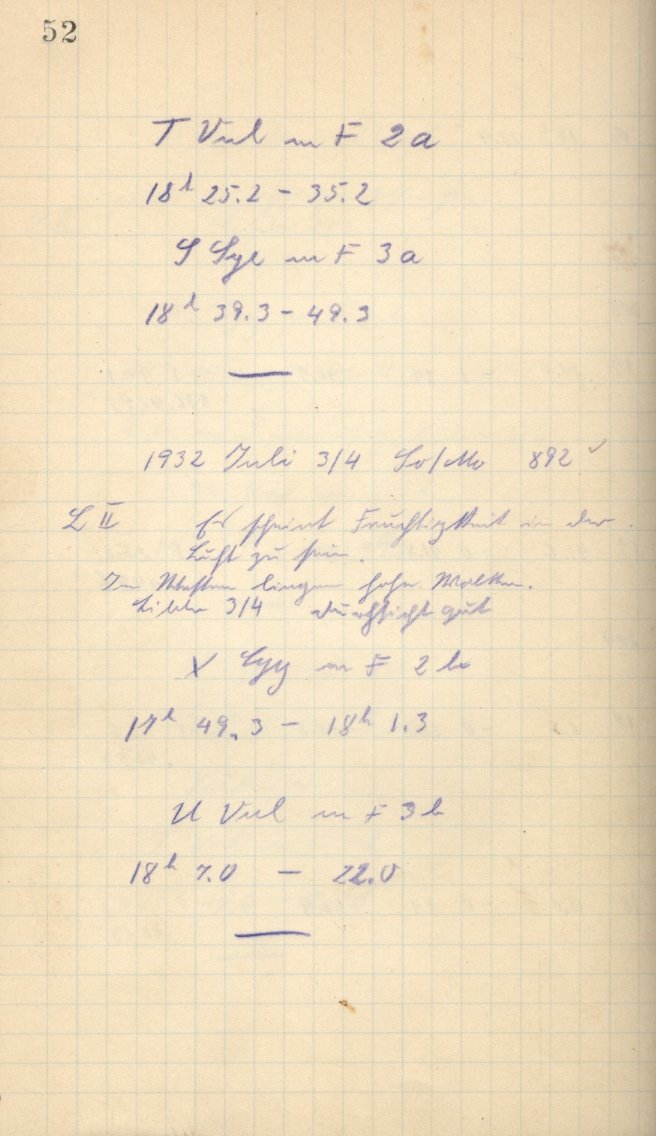 52
T Vul m F 2a
18h 25.2 - 35.2
S Sge m F 3a
18h 39.3 - 49.3
1932 Juli 3/4 So/Mo 892 ✓
L II Es scheint Feuchtigkeit in der
Luft zu sein.
Im Westen liegen hohe Wolken.
3/4 Durchsicht gut
X Cyg m F 2b
17h 49.3 - 18h 1.3
U Vul m F 3b
18h 7.0 - 22.0